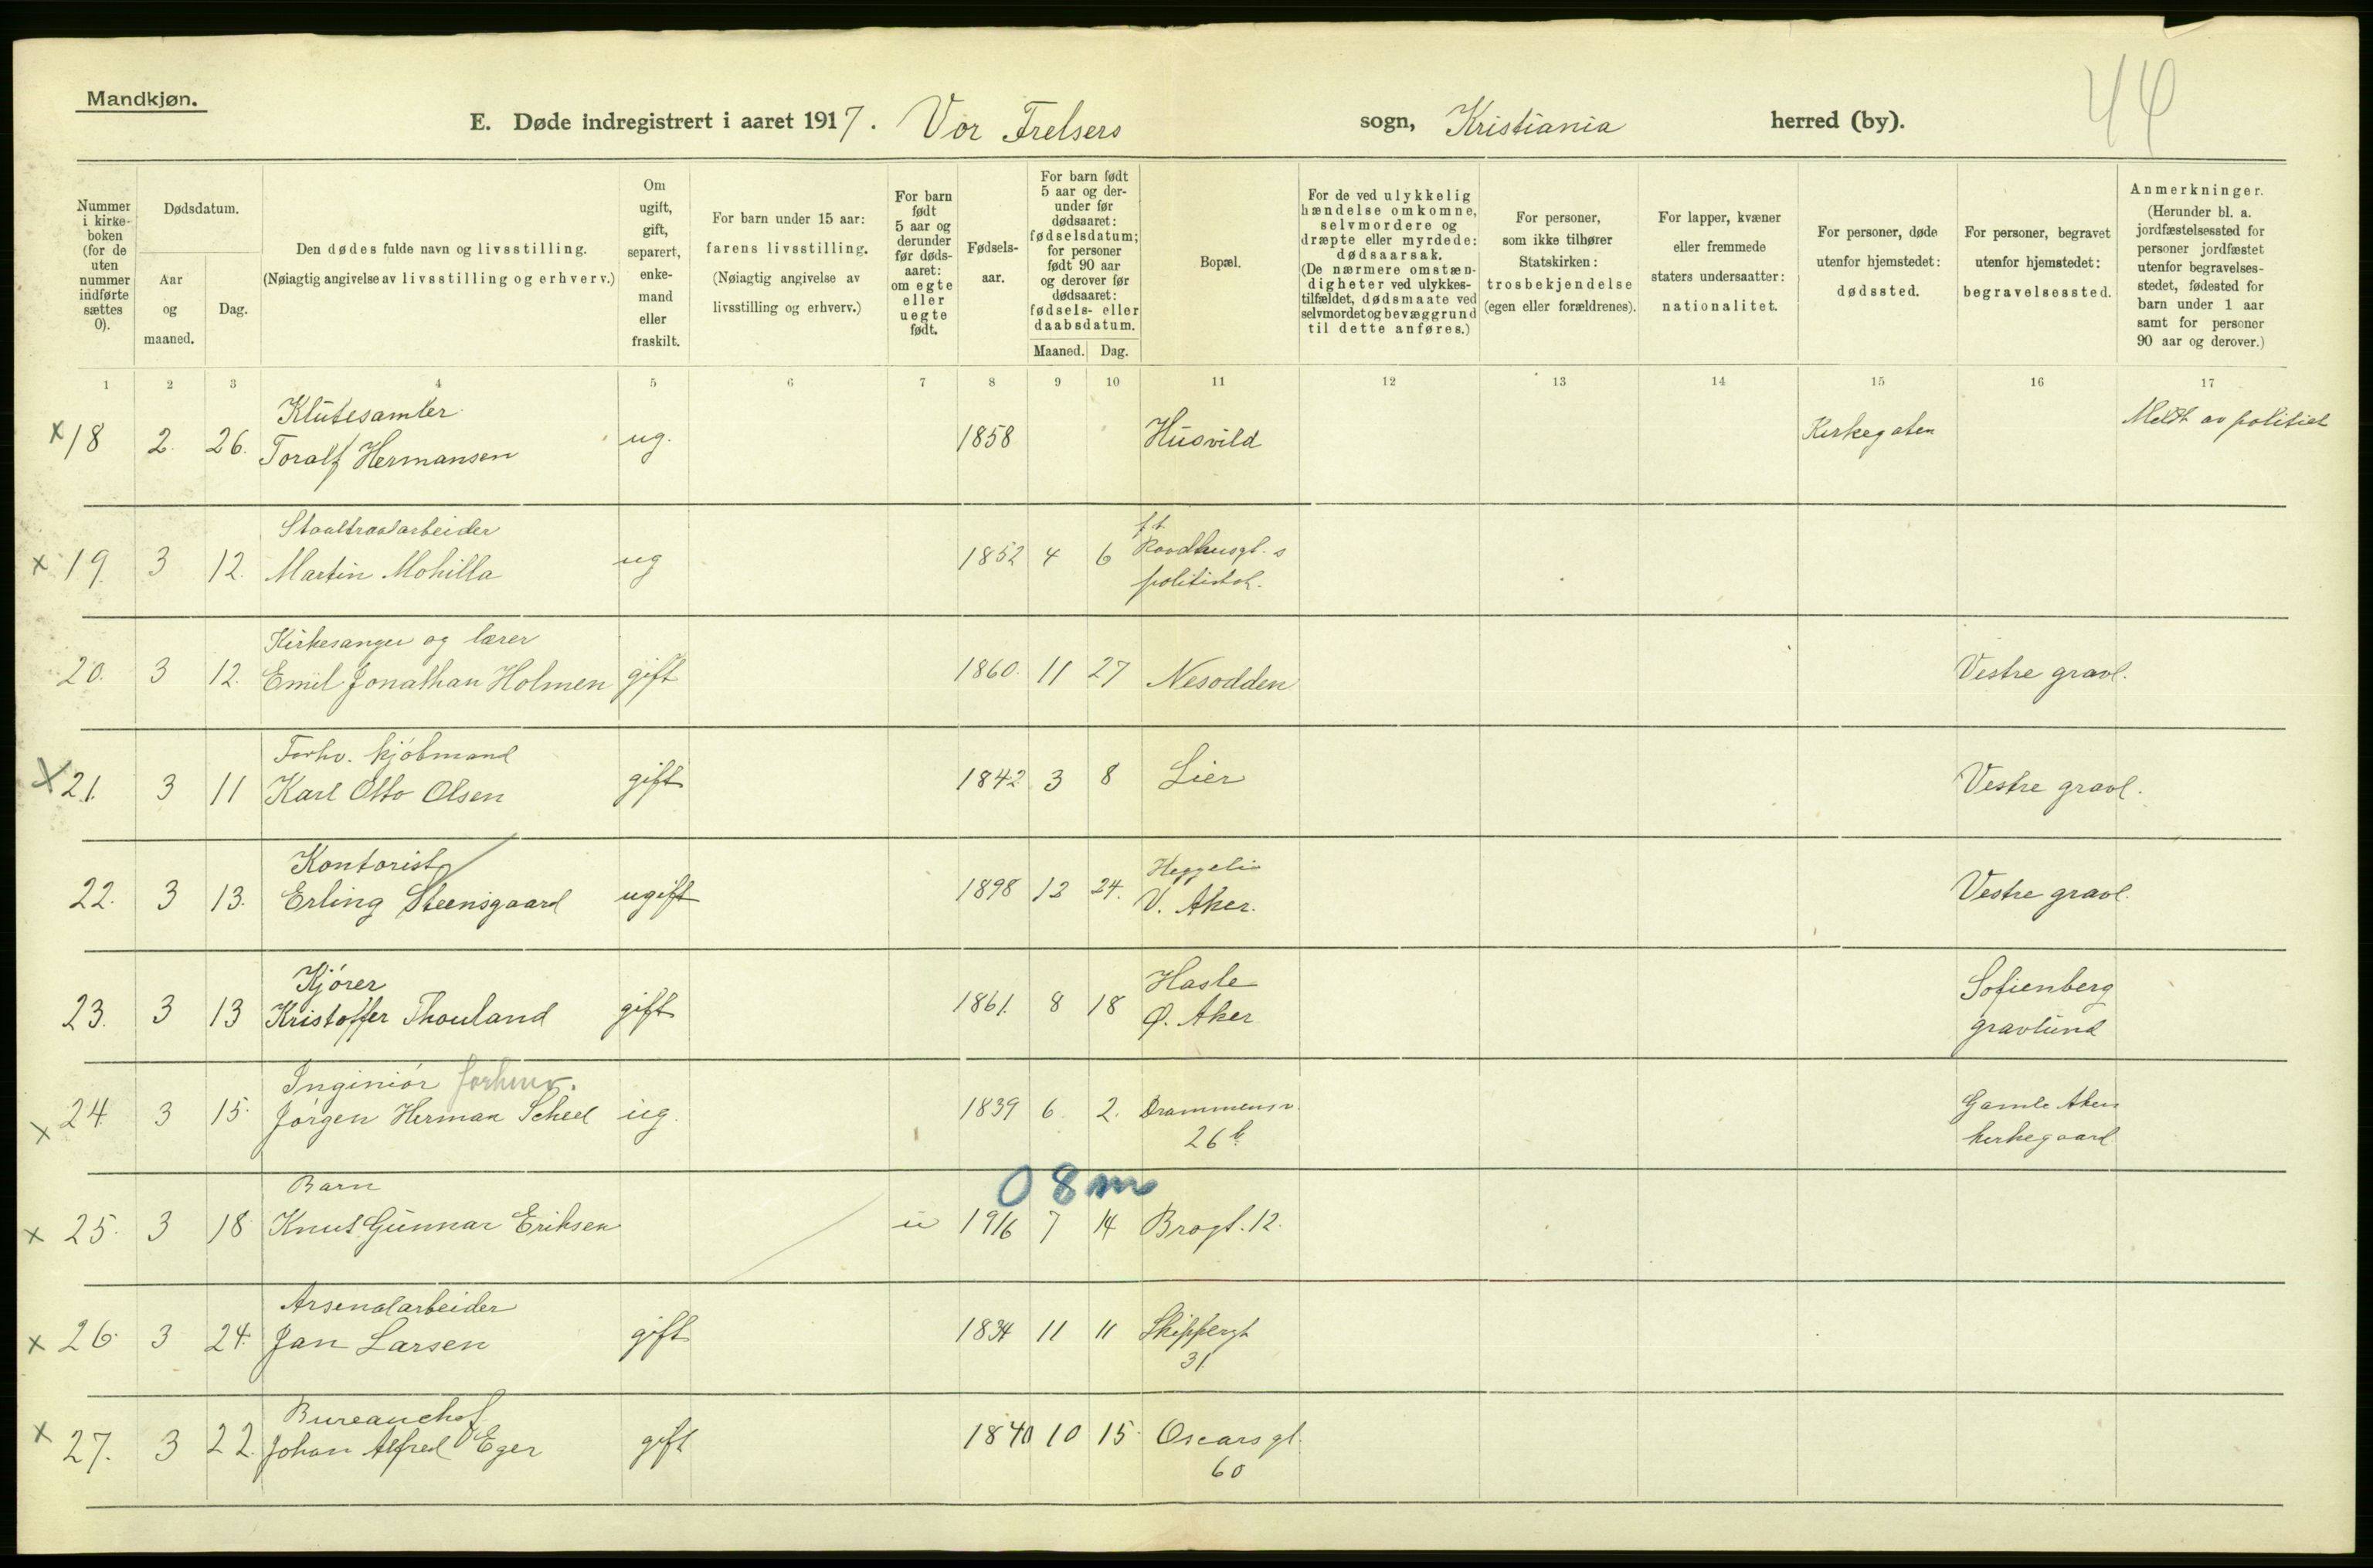 44
Mandkjøn.
E. Døde indregistrert i aaret 1917. Vor Frelsers sogn, Kristiania herred (by).
Nummer i kirkeboken (for de uten nummer indførte sættes 0).
Dødsdatum.
Aar og maaned.
Dag.
Den dødes fulde navn og livsstilling.
(Nøiagtig angivelse av livsstilling og erhverv.)
Om ugift, gift, separert, enkemand eller fraskilt.
For barn under 15 aar: farens livsstilling.
(Nøiagtig angivelse av livsstilling og erhverv.)
For barn født 5 aar og derunder før dødsaaret: om egte eller uegte født.
Fødselsaar.
For barn født 5 aar og derunder før dødsaaret: fødselsdatum; for personer født 90 aar og derover før dødsaaret: fødsels- eller daabsdatum.
Maaned. Dag.
Bopæl.
For de ved ulykkelig hændelse omkomne, selvmordere og dræpte eller myrdede: dødsaarsak.
(De nærmere omstændigheter ved ulykkestilfældet, dødsmaate ved selvmordet og bevæggrund til dette anføres.)
For personer, som ikke tilhører Statskirken: trosbekjendelse (egen eller forældrenes).
For lapper, kvæner eller fremmede staters undersaatter: nationalitet.
For personer, døde utenfor hjemstedet: dødssted.
For personer, begravet utenfor hjemstedet: begravelsessted.
Anmerkninger.
(Herunder bl. a. jordfæstelsessted for personer jordfæstet utenfor begravelsesstedet, fødested for barn under 1 aar samt for personer 90 aar og derover.)
1 2 3 4 5 6 7 8 9 10 11 12 13 14 15 16 17
Klutesamler
x 18 2. 26. Toralf Hermansen ug. 1858 Husvild Kirkegaten Meldt av politiet
Staaltraadarbeider
x 19. 3 12. Martin Mohilla ug 1852 4 6 Raadhusgt. s
Kirkesanger og lærer
20. 3 12. Emil Jonathan Holmen gift 1860. 11 27 Nesodden Vestre gravl.
Forhv. kjøbmand
x 21. 3 11 Karl Otto Olsen gift 1842 3 8 Lier Vestre gravl.
Kontorist Heggeli
22. 3 13. Erling Steensgaard ugift 1898 12 24. V. Aker. Vestre gravl.
Kjører Hasle Sofienberg
23. 3 13 Kristoffer Thouland gift 1861. 8 18 Ø. Aker gravlund
Inginiør forhenv.
x 24 3 15. Jørgen Herman Scheel ug. 1839 6 2. Drammensv. Gamle Akers
26 b. kirkegaard
Barn 0 8 m
x 25. 3 18 Knut Gunnar Eriksen u 1916 7 14 Brogt. 12.
Arsenalarbeider
x 26. 3 24. Jan Larsen gift 1834 11 11 Skippergt
31
Bureauchef
x 27. 3 22. Johan Alfred Eger gift 1840 10 15. Oscarsgt.
60